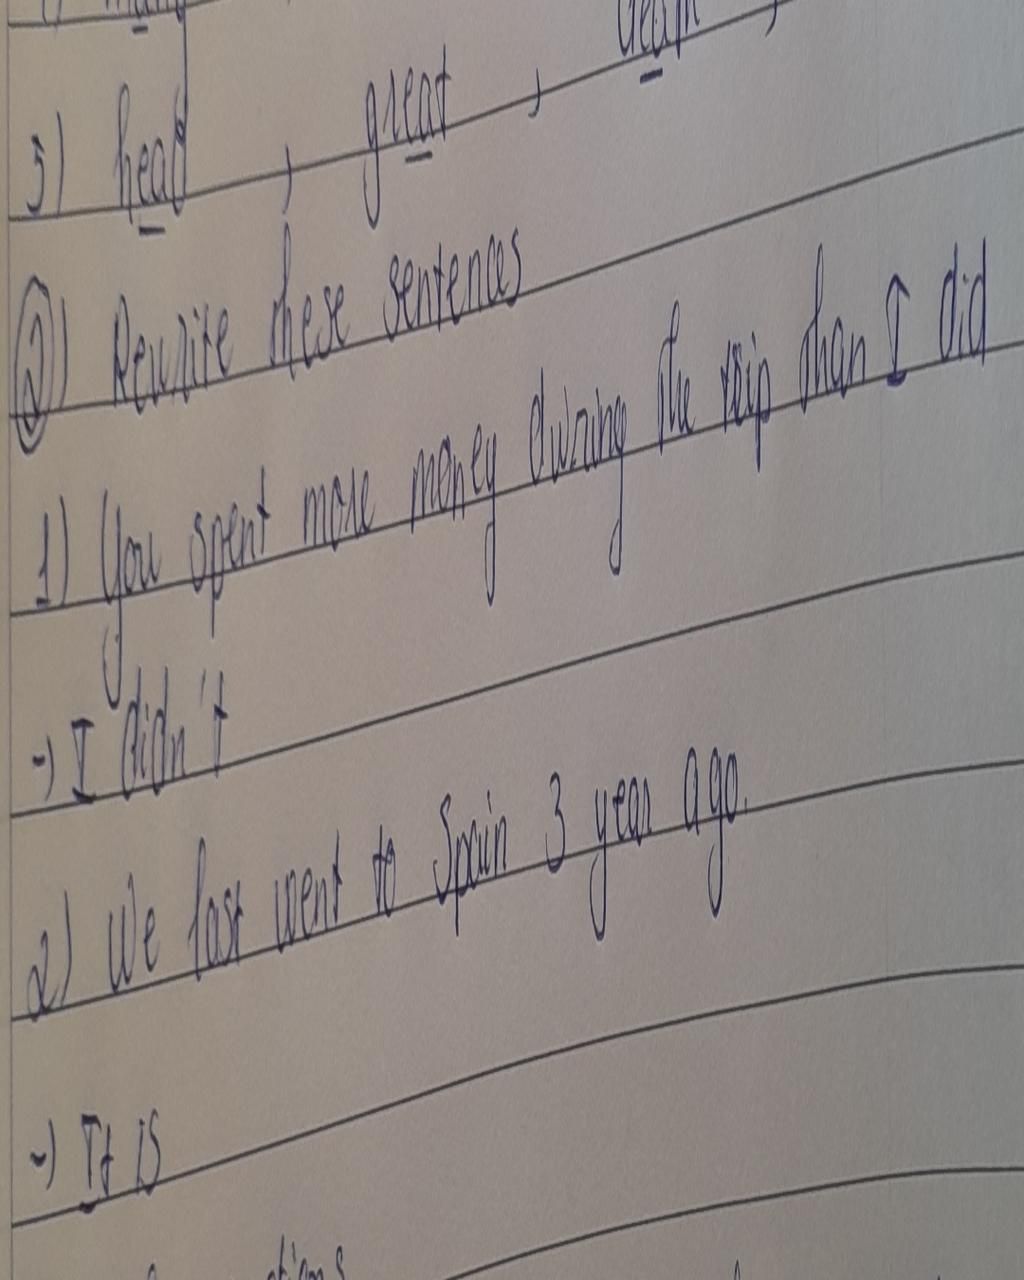 5) head , great , team ,
2) Rewrite these sentences
1) You spent more money during the trip than I did
-) I didn't
2) We last went to Spain 3 year ago.
-) It is